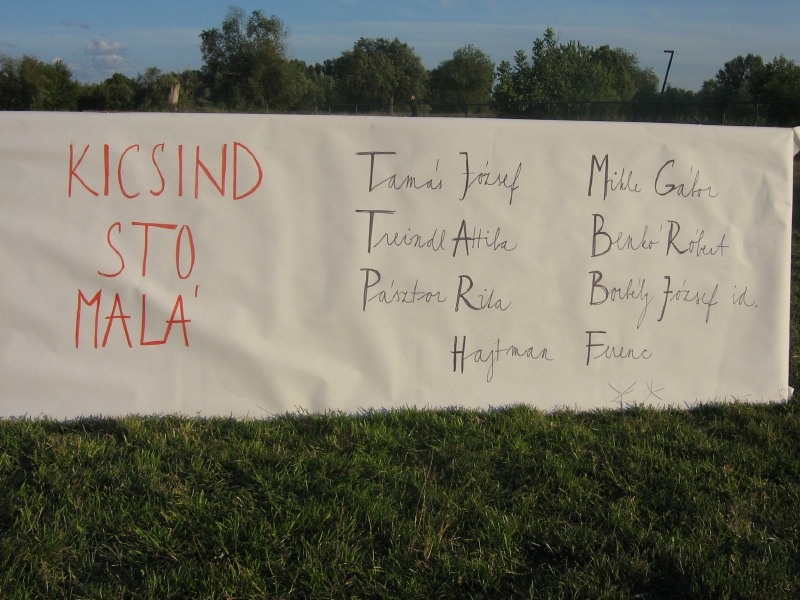 KICSIND
STO
MALÁ
Tamás József
Treindl Attila
Pásztor Rita
Mikle Gábor
Benkó Róbert
Borbély József id.
Hajtman Ferenc